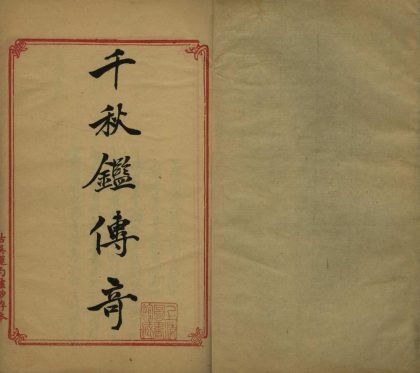 千秋鑑傳奇